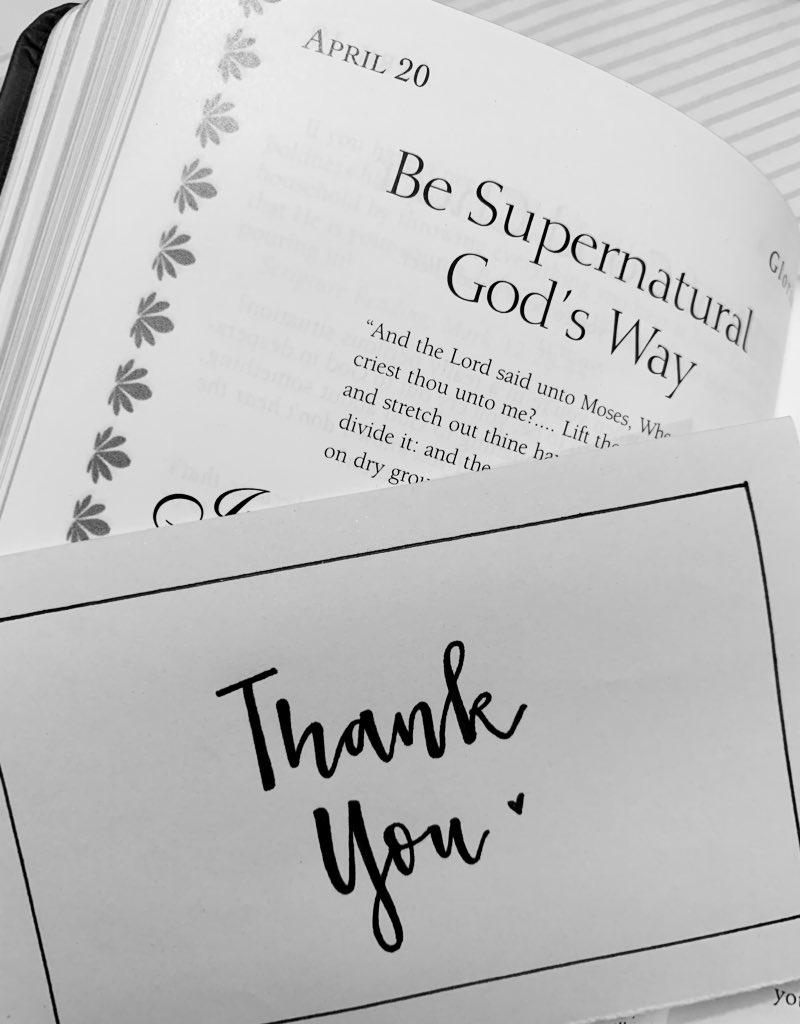 APRIL 20
Be Supernatural
God's Way
"And the Lord said unto Moses,
criest thou unto me?.... Lift
and stretch out thine
divide it: and the
on dry
Thank
You